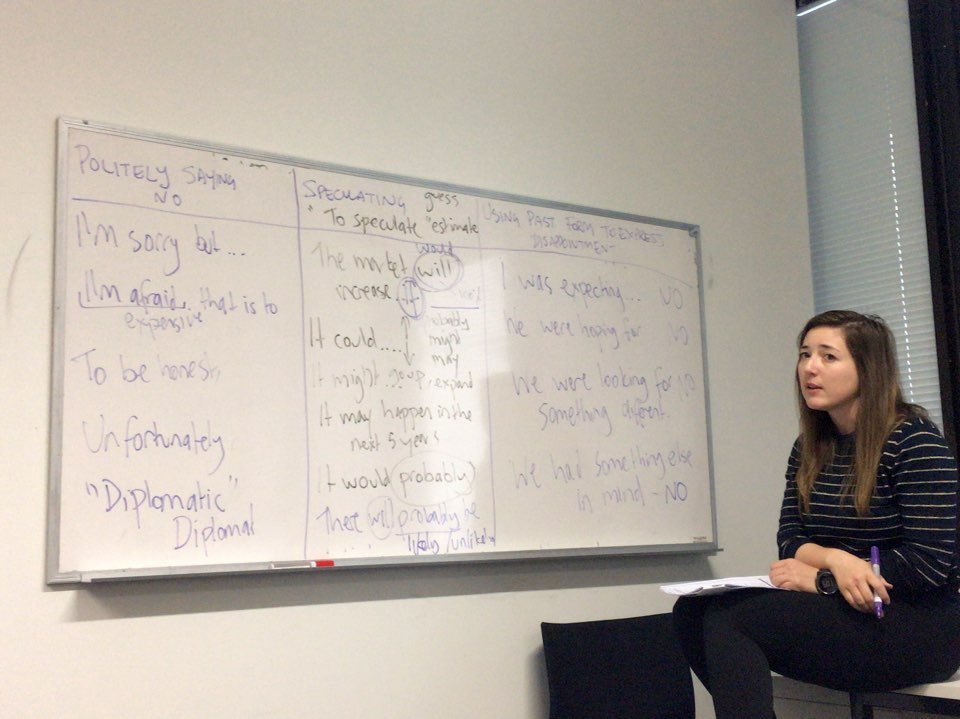 POLITELY SAYING
NO
I'm sorry but...
I'm afraid.. that is to
expensive
To be honest,
Unfortunately
"Diplomatic"
Diplomat
SPECULATING guess
"To speculate "estimate
would
The market will
increase...if
It could....
probably
might
may
It might expand
It may happen in the
next 5 years
It would probably
There will probably be
likely/unlikely
USING PAST FORM TO EXPRESS
DISAPPOINTMENT
I was expecting... NO
We were hoping for NO
We were looking for NO
something different.
We had something else
in mind - NO